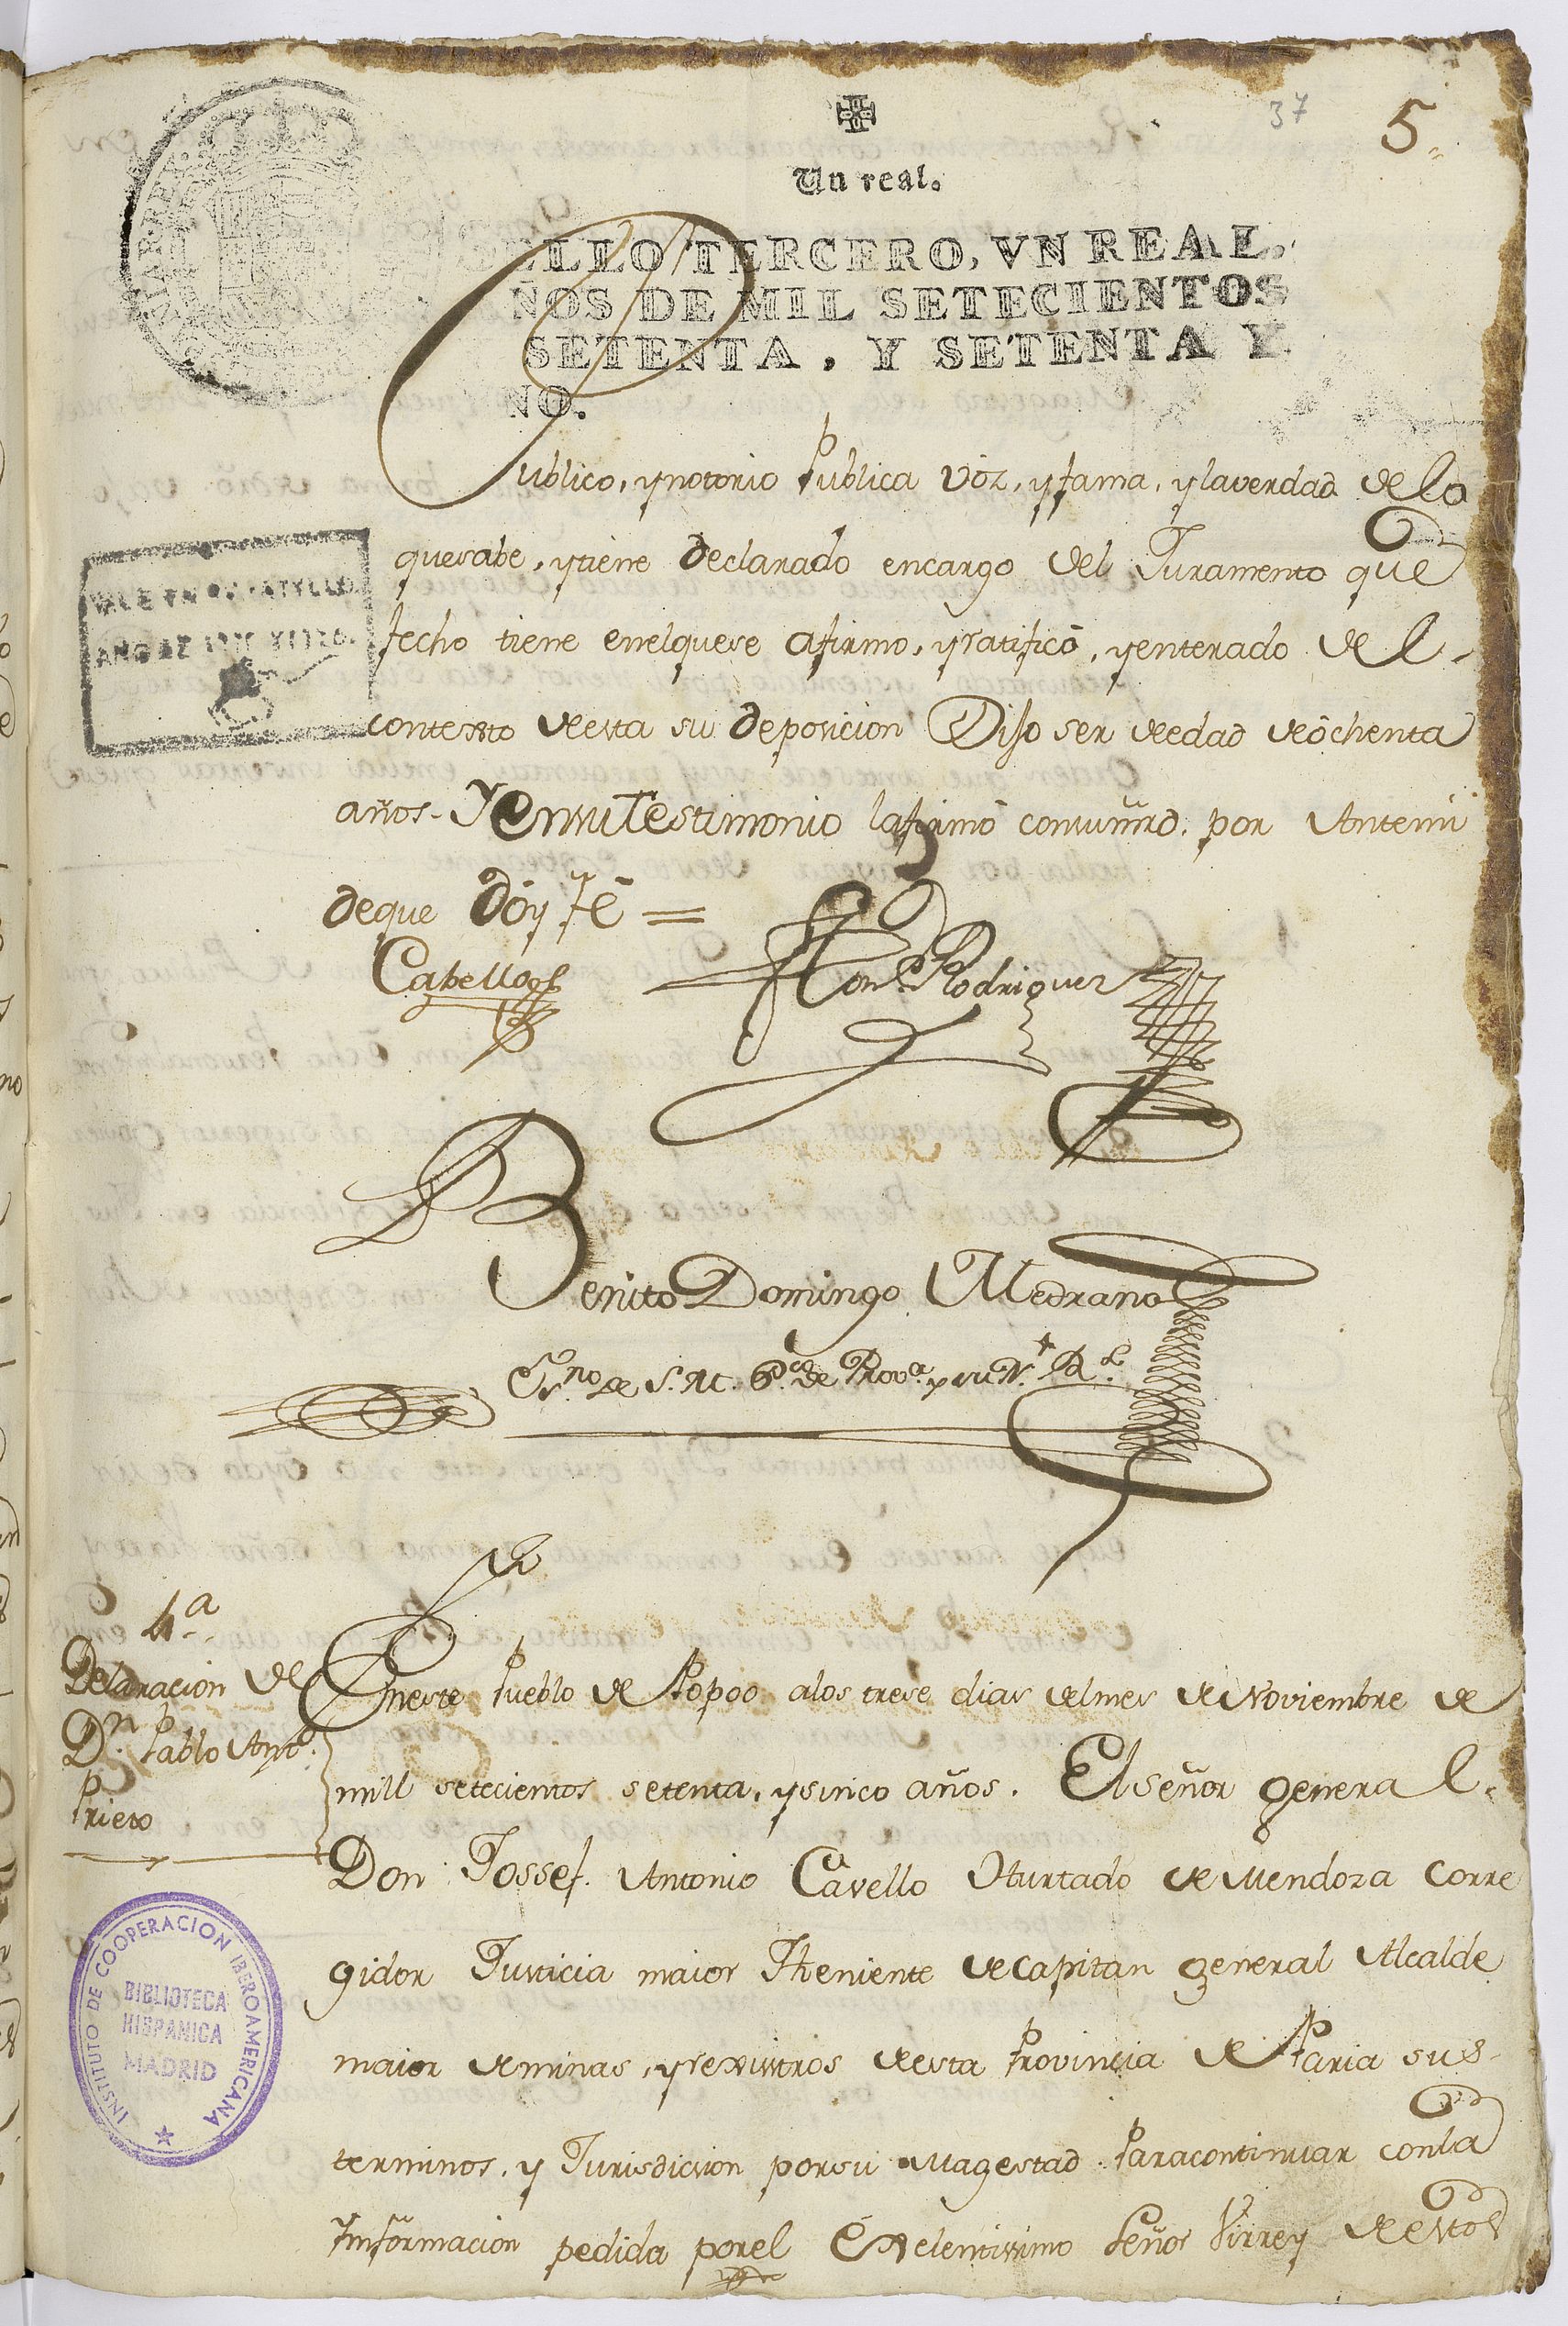 37 5
Un real.
SELLO TERCERO, VN REAL,
ÑOS DE MIL SETECIENTOS
SETENTA, Y SETENTA Y
NO.
Publico, y notorio Publica voz, y fama, y la verdad de lo
que sabe, y tiene declarado encargo del Juramento que
fecho tiene en el que se afirmo, y ratificó, y enterado de el
contexto de esta su deposicion Dijo ser de edad de óchenta
años. Y en su Testimonio la firmó con su mrd. por Antemi
de que Dóy fé =
Cabello
Rodriguez
Benito Domingo Medrano
Es.no de S. M. P.co de Prov.a y su N. R.l
4.a
Delaracion de
D.n Pablo Ant.o
Prieto
En este Pueblo de Popoo a los trese dias del mes de Noviembre de
mill setecientos setenta, y sinco años. El señor general
Don Jossef Antonio Cavello Hurtado de Mendoza Corre
gidor Justicia maior Theniente de Capitan general Alcalde
maior de minas, y rexistros de esta Provincia de Paria sus
terminos, y Jurisdicsion por su Magestad Para continuar con la
Informacion pedida por el Exelentissimo Señor Virrey de estos
INSTITUTO DE COOPERACION IBEROAMERICANA
BIBLIOTECA
HISPANICA
MADRID